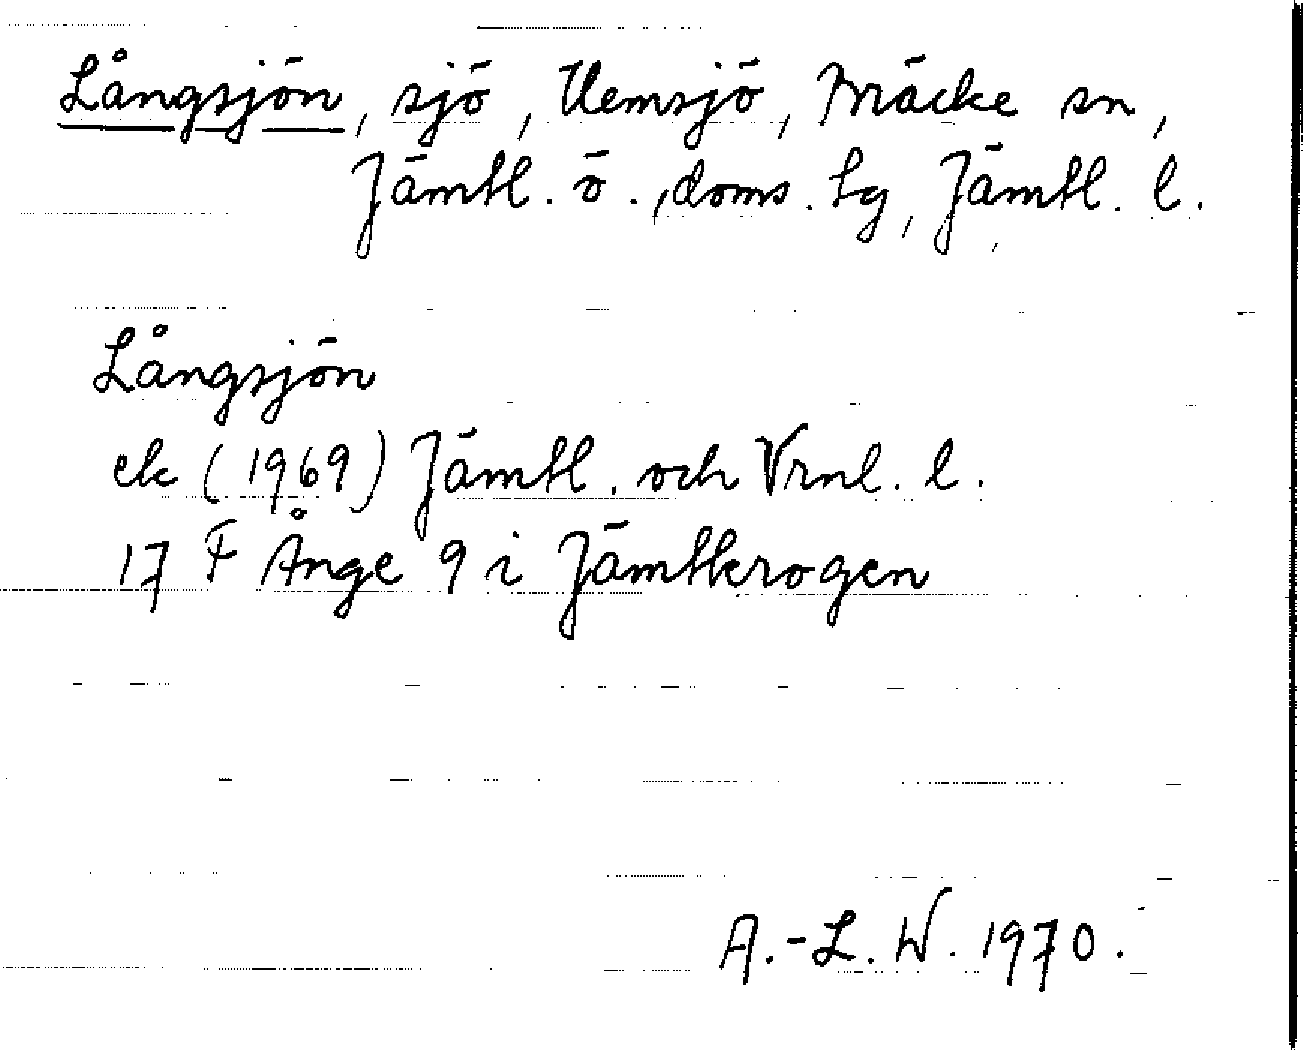 Långsjön, sjö, Hemsjö, Bräcke sn,
Jämtl. ö., doms. lg, Jämtl. l.
Långsjön
ek (1969) Jämtl. och Vrnl. l.
17 F Ånge 9 i Jämtkrogen
A.-L. W. 1970.